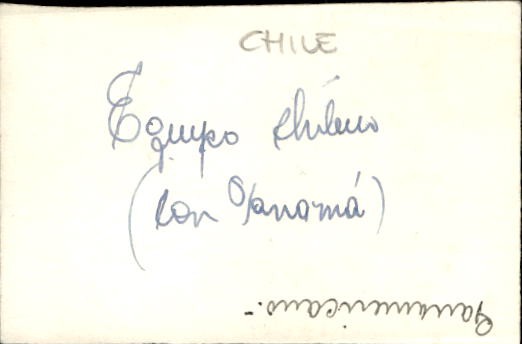 CHILE
Equipo chileno
(con Panamá)
Panamericano.-